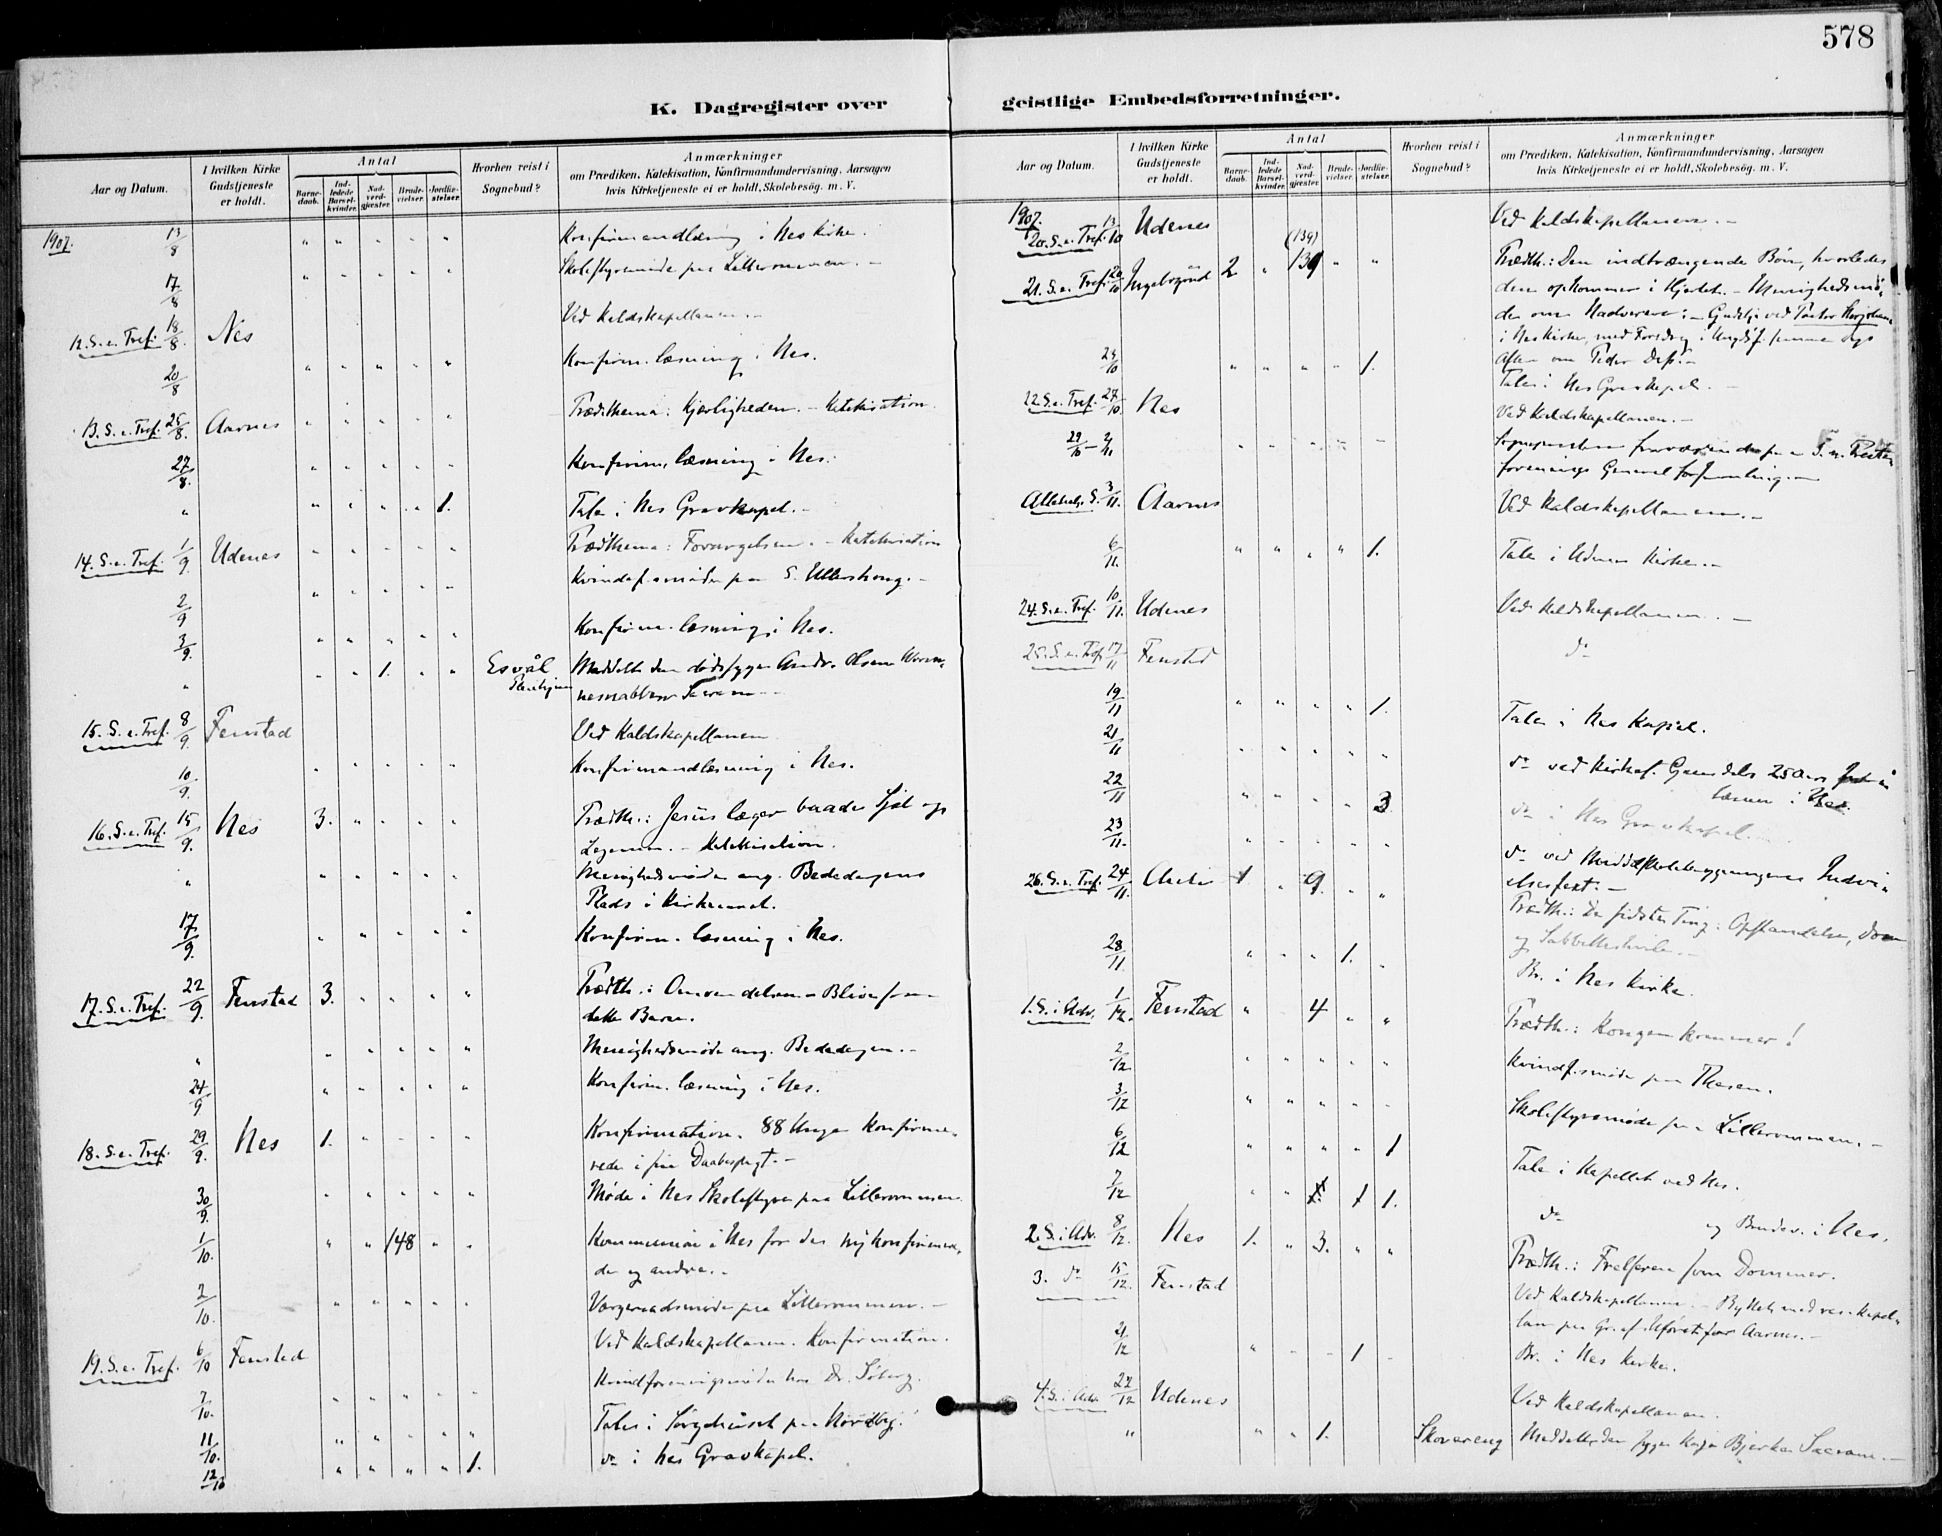 578
K. Dagregister over
geistlige Embedsforretninger.
Aar og Datum.
I hvilken Kirke Gudstjeneste er holdt.
Antal
Barnedaab.
Indledede Barselkvinder.
Nadverdgjester.
Brudevielser.
Jordfæstelser.
Hvorhen reist i Sognebud?
Anmærkninger
om Prædiken, Katekisation, Konfirmandundervisning, Aarsagen
hvis Kirketjeneste ei er holdt, Skolebesøg. m. V.
1907. 13/8 Konfirmandlæsning i Nes Kirke.
17/8 Skolestyremøde paa Lillerommen.
12. S. e. Tref. 18/8. Nes Ved Kaldskapellanen.
20/8 Konfirm. læsning i Nes.
13. S. e. Tref. 25/8. Aarnes Prædthema: Kjærligheden. - Katekisation.
27/8. Konfirm. læsning i Nes.
" 1. Tale i Nes Gravkapel. -
14. S. e. Tref. 1/9. Udenes Prædthema: Forargelsen. - Katekisation
2/9 Kvindef.smøde paa S. Ullershong. -
3/9. Konfirm. læsning i Nes.
" 1. Esvål Meddelt den dødssyge Andr. Olsen
15. S. e. Tref. 8/9. Fenstad Ved Kaldskapellanen
10/9. Konfirmandlæsning i Nes.
16. S. e. Tref. 15/9. Nes 3. Prædth.: Jesus læger baade Sjel og
Legeme. - Katekisation.
" Menighedsmøde ang. Bededagens
Plads i Kirkeaaret.
17/9. Konfirm. læsning i Nes.
17. S. e. Tref. 22/9. Fenstad 3. Prædth.: Omvendelsen - Bliven som
dette Barn.
" Menighedsmøde ang. Bededagen. -
24/9 Konfirm. læsning i Nes.
18. S. e. Tref. 29/9. Nes 1. Konfirmation. 88 Unge konfirme-
rede i sin Daabspagt. -
30/9. Møde i Nes Skolestyre paa Lillerommen.
1/10. 148 Kommunion i Nes for de nykonfirmere-
de og andre. -
2/10. Vergeraadsmøde paa Lillerommen. -
19. S. e. Tref. 6/10 Fenstad Ved Kaldskapellanen. Konfirmation.
7/10. Kvindforeningsmøde hos Dr. Søberg.
11/10. Tale i Sørgehuset paa Nordby.
12/10 1. do i Nes Gravkapel.
Aar og Datum.
I hvilken Kirke Gudstjeneste er holdt.
Antal
Barnedaab.
Indledede Barselkvinder.
Nadverdgjester.
Brudevielser.
Jordfæstelser.
Hvorhen reist i Sognebud?
Anmærkninger
om Prædiken, Katekisation, Konfirmandundervisning, Aarsagen
hvis Kirketjeneste ei er holdt, Skolebesøg. m. V.
1907.
20. S. e. Tref. 13/10 Udenes Ved Kaldskapellanen. -
(139)
21. S. e. Tref. 20/10 Ingeborgrud 2 139 Prædth.: Den indtrængende Bøn, hvorledes
den opkommer i Hjertet. - Menighedsmø-
de om Nadveren: - Gudstj. ved Pastor
i Nes Kirke, med Foredrag i Ungdsf. samme Dags
Aften om Peder Dass. -
24/10 1. Tale i Nes Gravkapel. -
22. S. e. Tref. 27/10. Nes Ved Kaldskapellanen. -
29/10 - 2/11 Sognepresten fraværende paa d. n. Preste-
forenings Generalforsamling. -
Allehelg. S. 3/11. Aarnes Ved Kaldskapellanen. -
6/11. 1. Tale i Udenes Kirke. -
24. S. e. Tref. 10/11. Udenes Ved Kaldskapellanen. -
25. S. e. Tref. 17/11 Fenstad do
19/11 1. Tale i Nes Kapel.
21/11 do ved Kirkes. 25 Aars
i Nes.
22/11 3. do i Nes Gravkapel.
23/11. do ved Middelskolebygningens Indvi-
elsesfest. -
26. S. e. Tref. 24/11. 1 9. Prædth.: De sidste Ting: Opstandelse, Dom
og Sabbatshvile. -
28/11 1. Br. i Nes Kirke.
1. S. i Adv. 1/12. Fenstad 4 Prædth.: Kongen kommer!
2/12 Kvindf.smøde paa Thesen.
3/12 Skolestyremøde paa Lillerommen. -
6/12 1 Tale i Kapellet ved Nes.
7/12 1 1. do og Brudev. i Nes.
2. S. i Adv. 8/12. Nes 1. 3. Prædth.: Frelseren som Dommer.
3. do 15/12. Fenstad Ved Kaldskapellanen. - Byttet med res. kapel-
lan paa Gr. af Uføret for Aarnes. -
21/12 1 Br. i Nes Kirke.
4. S. i Adv. 22/12 Udenes Ved Kaldskapellanen.
" 1. Skovereng Meddelt den syge Bjerke Sacram. -